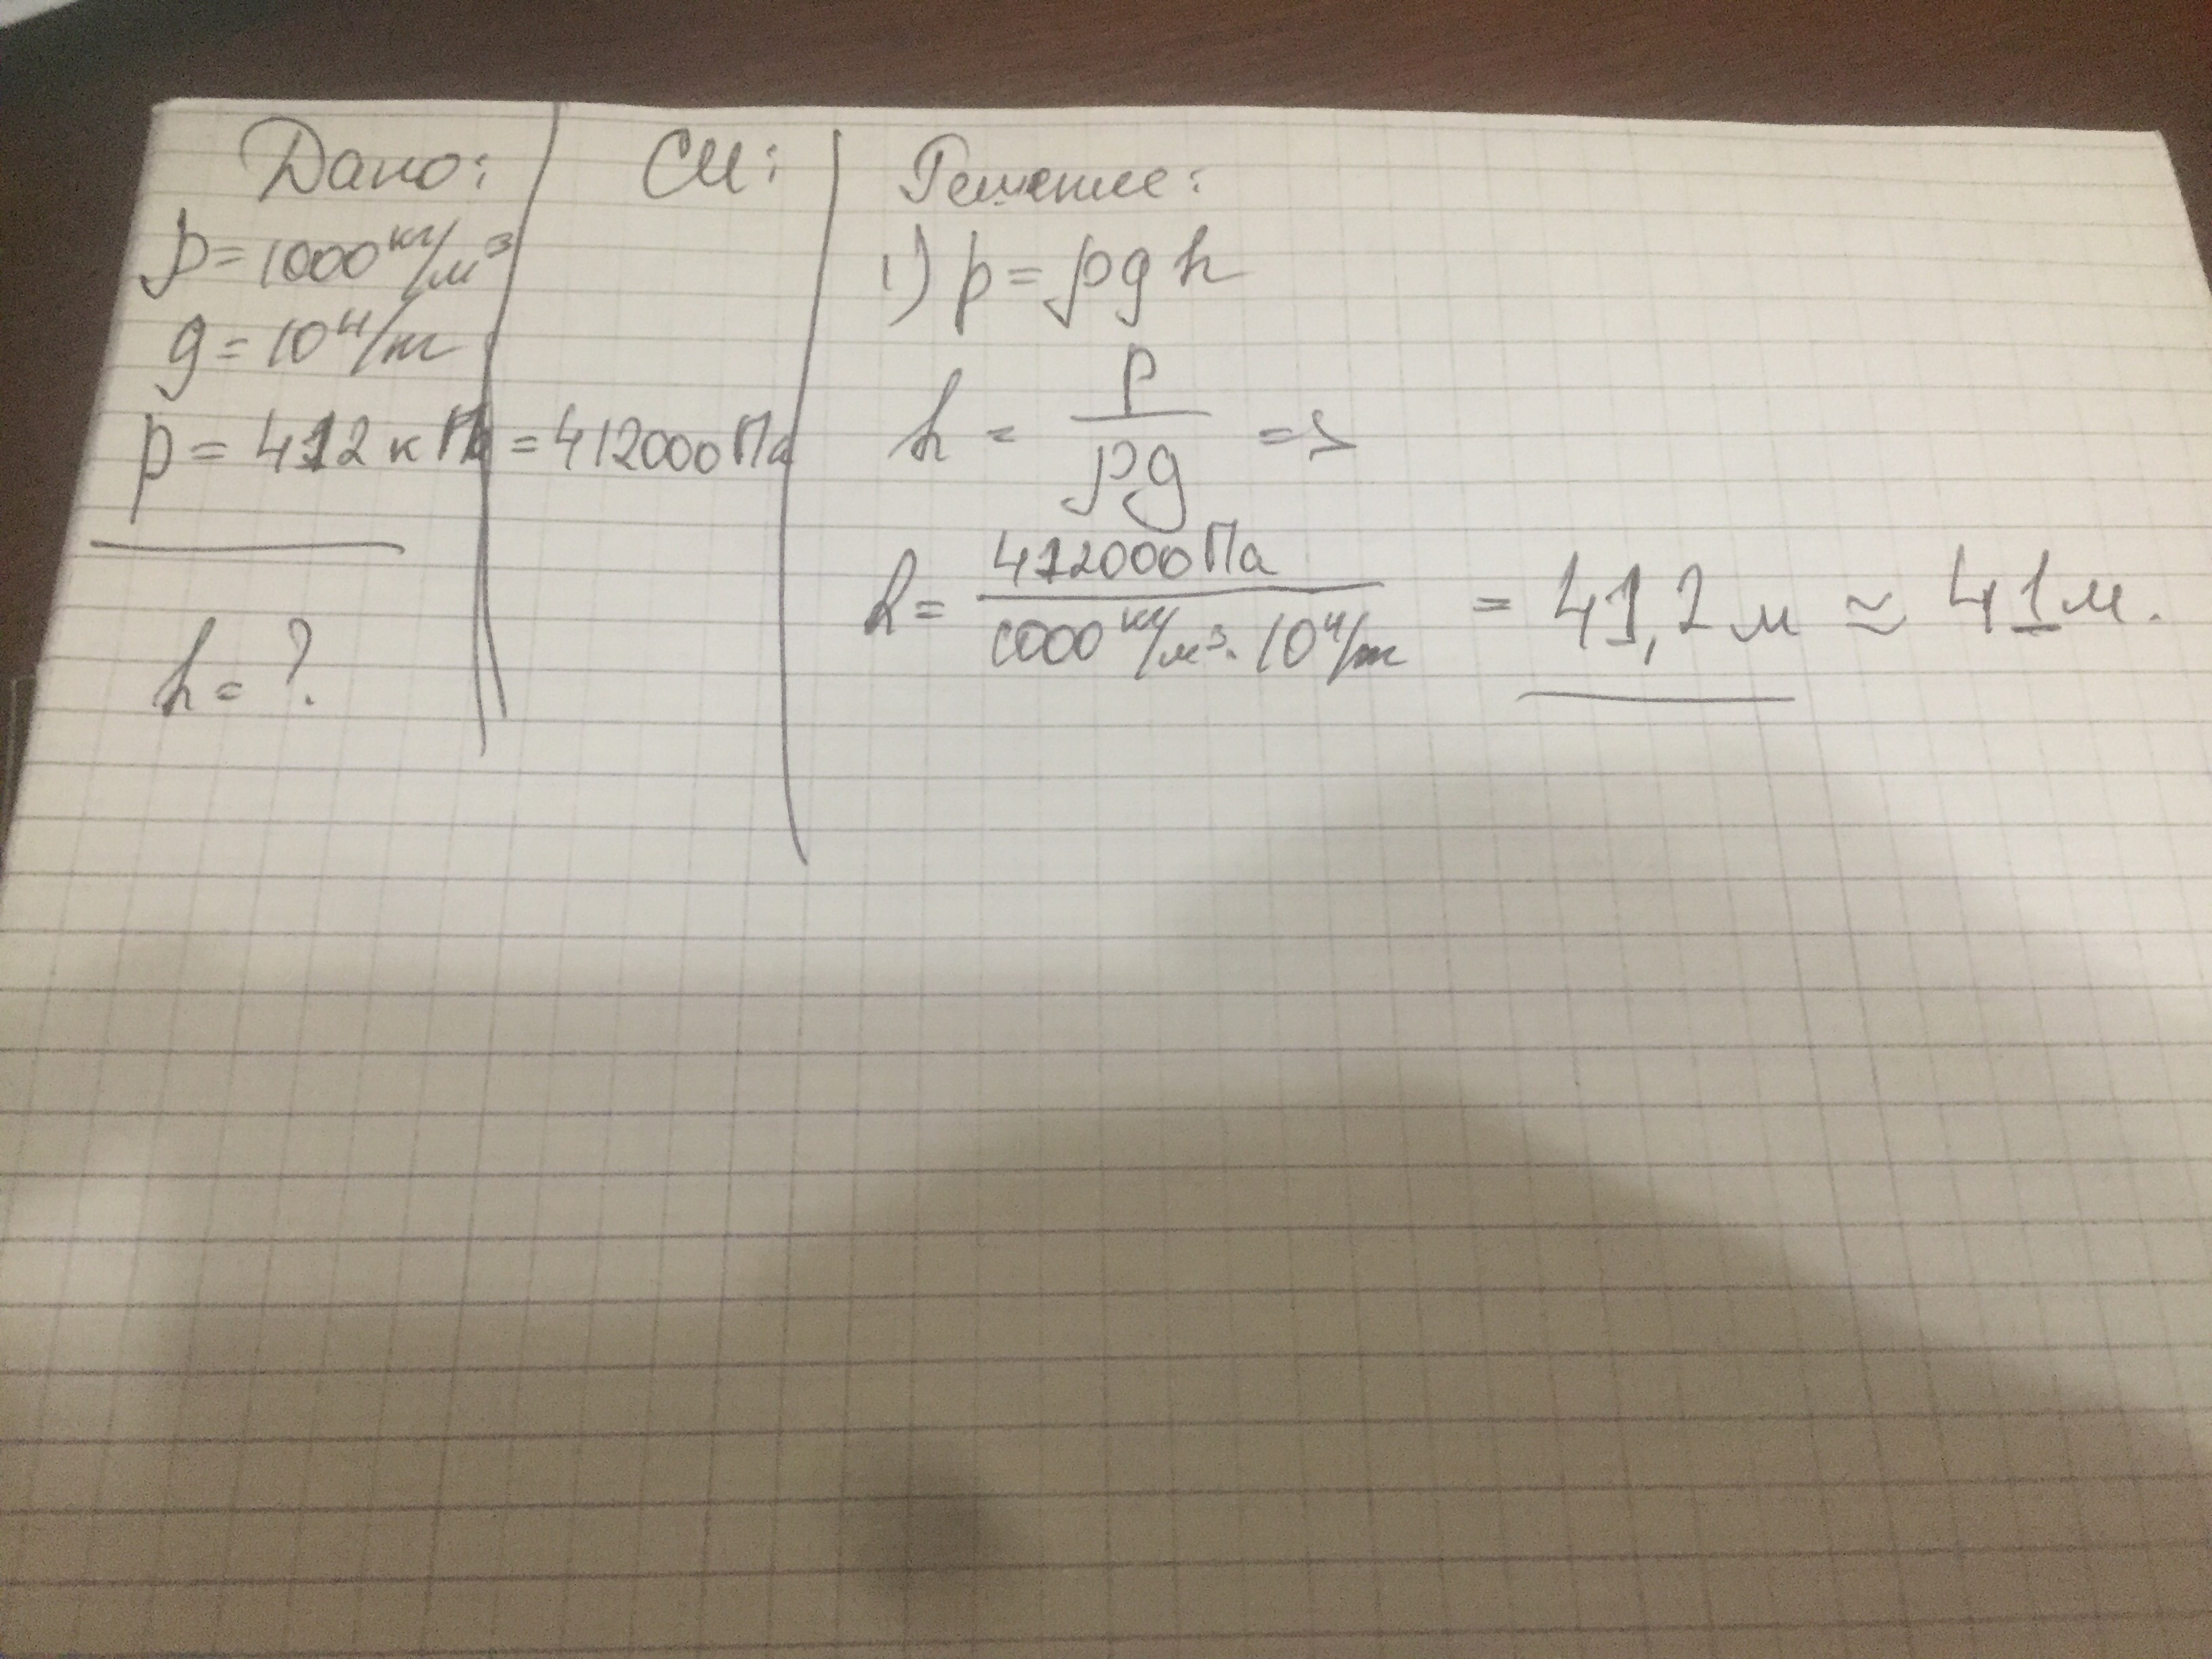 Дано:
ρ = 1000 кг/м³
g = 10 Н/м
p = 412 кПа
h = ?
СИ:
= 412000 Па
Решение:
1) p = ρgh
h = p/ρg =>
h = 412000 Па/1000 кг/м³ · 10 Н/м = 41,2 м ≃ 41 м.